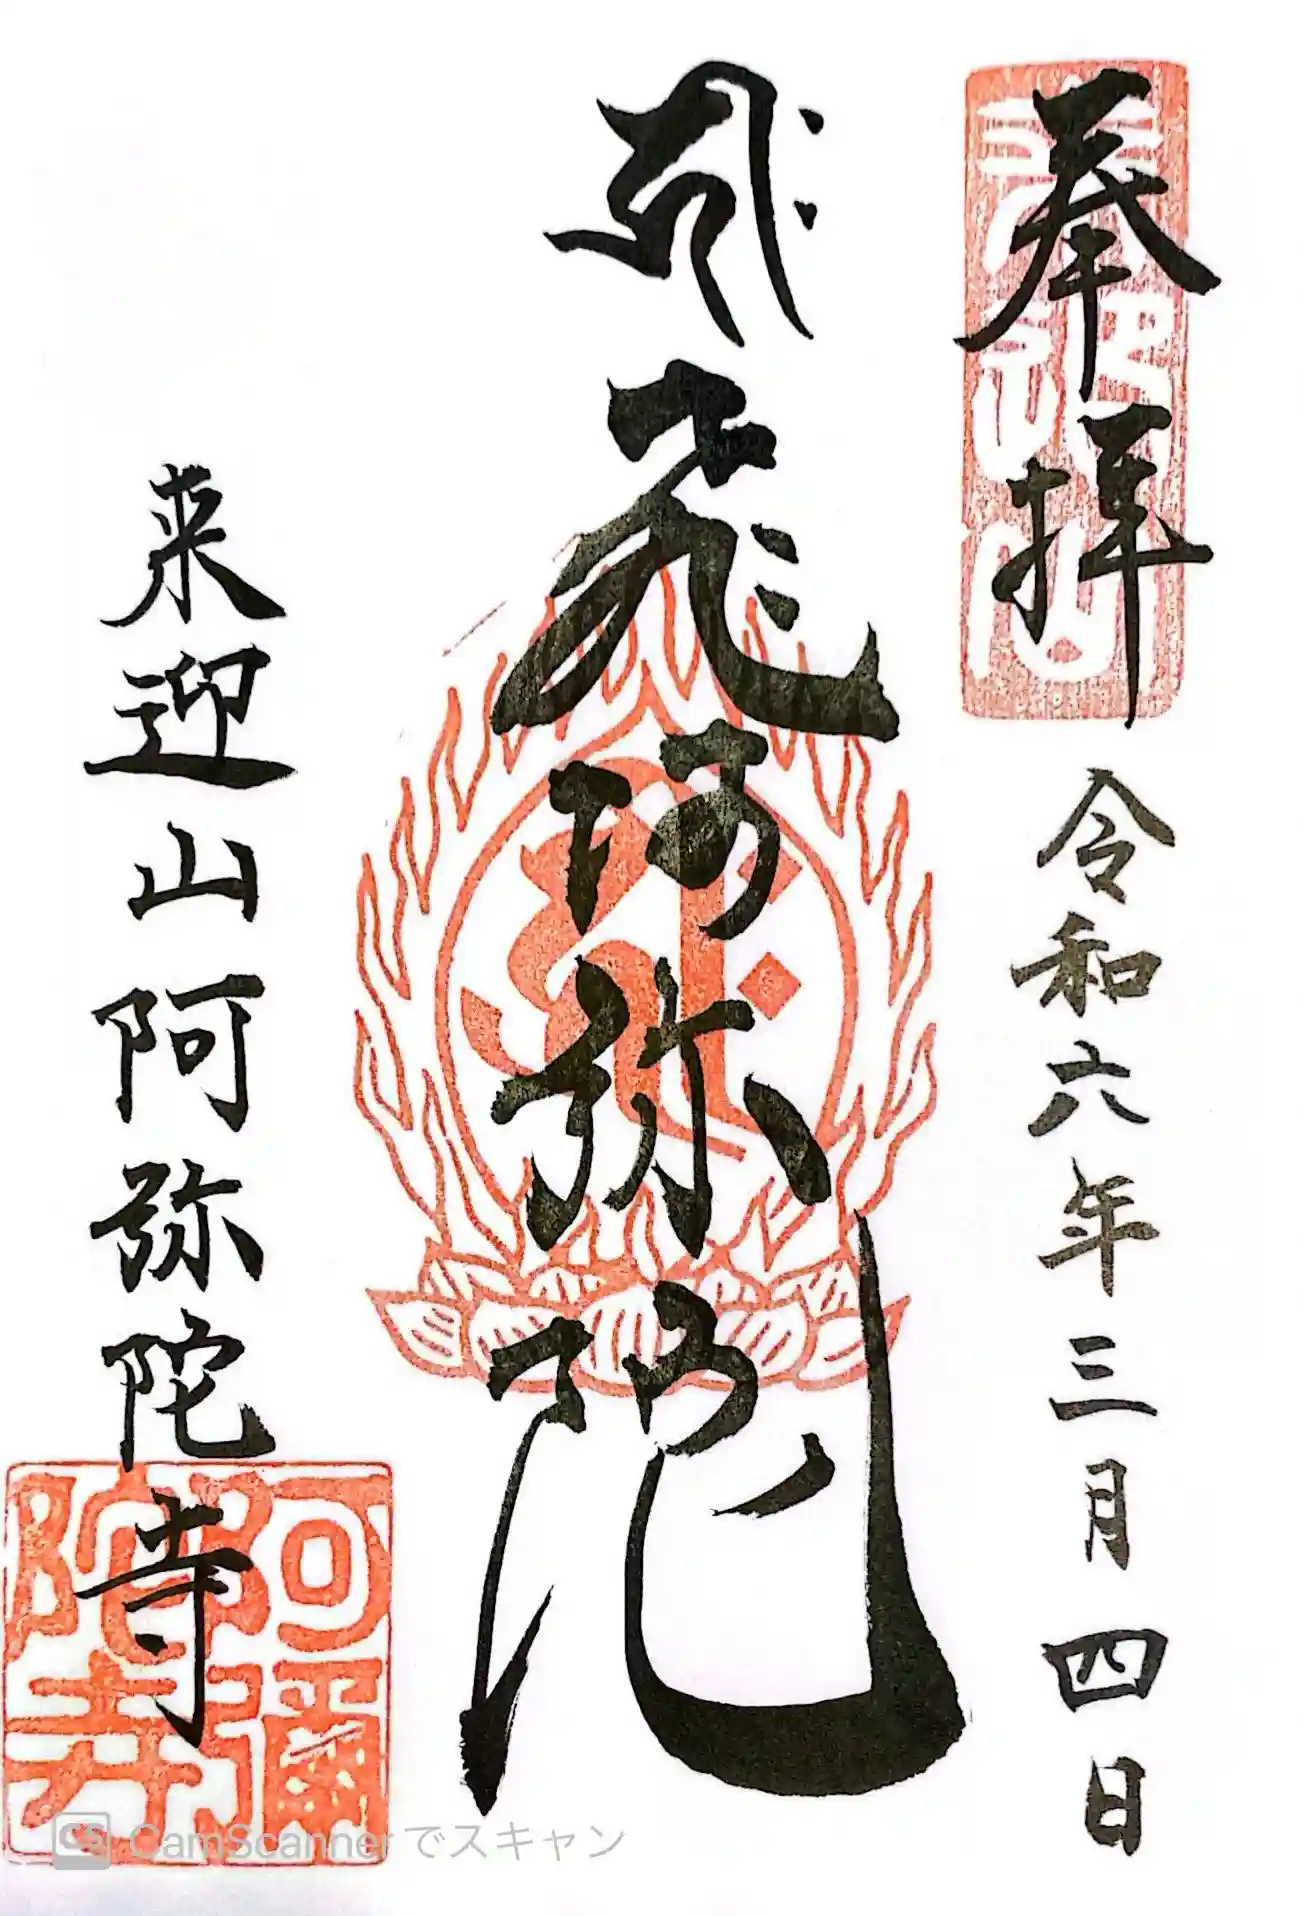 奉拝
令和六年三月四日
𑖮𑖿𑖨𑖱𑖾
飛阿弥陀
来迎山阿弥陀寺
阿彌陀寺
CS CamScanner でスキャン